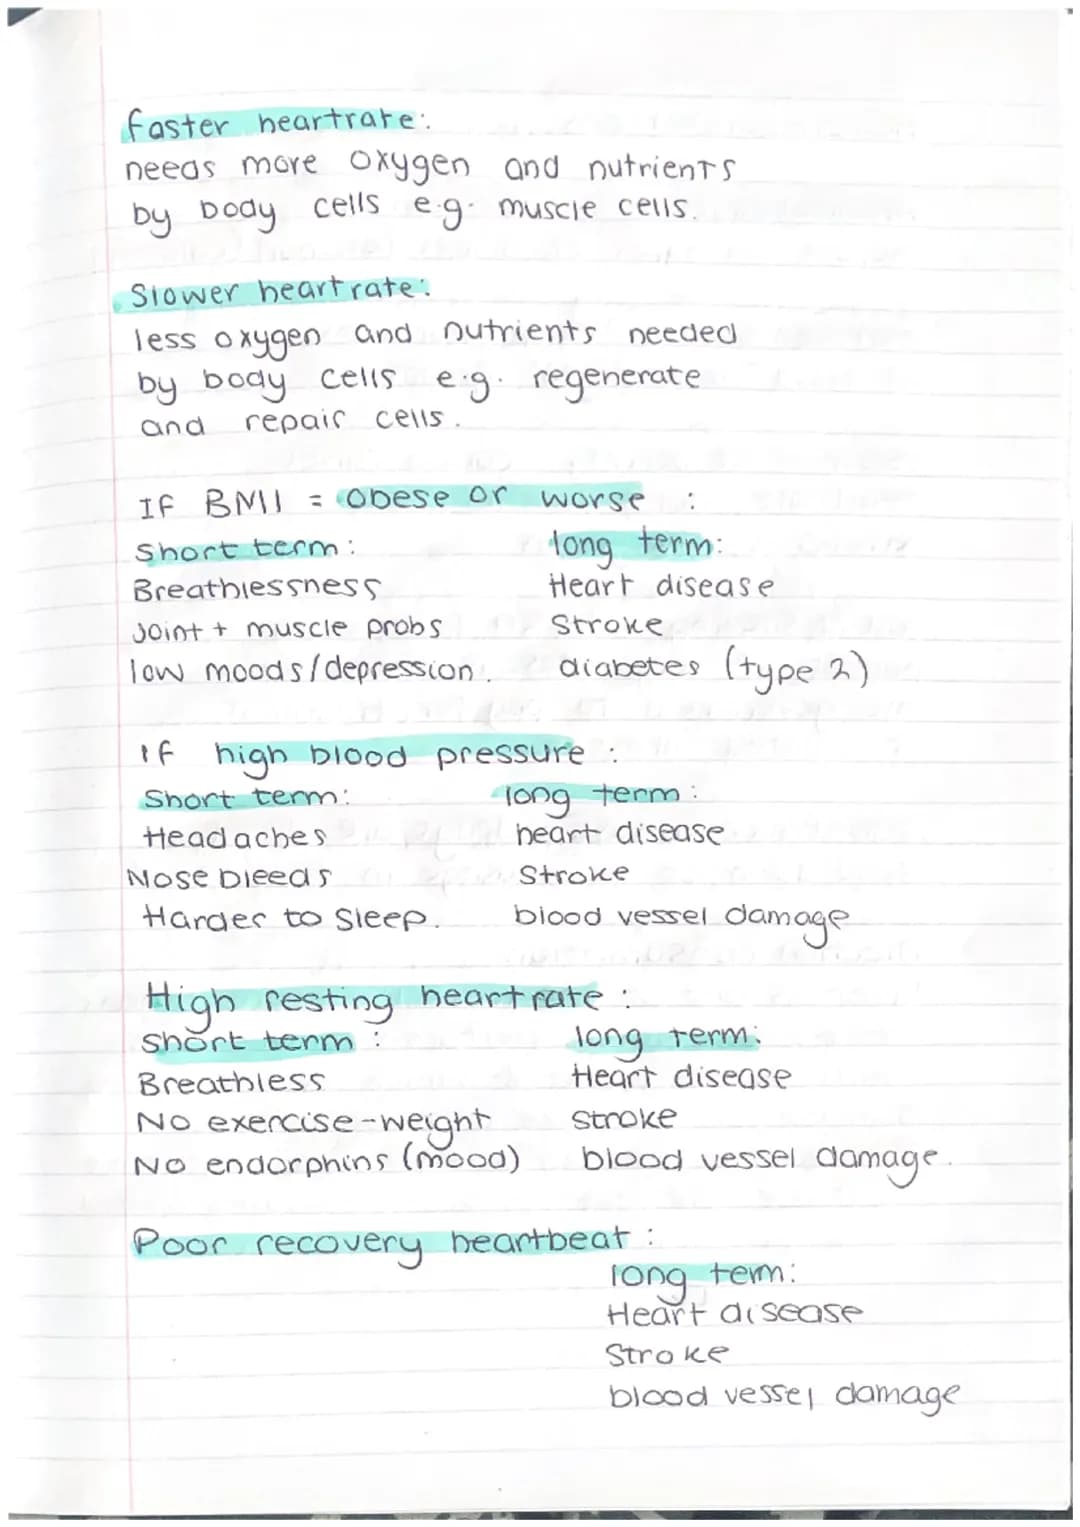 faster heartrate:
needs more oxygen and nutrients
by body cells e.g. muscle cells.
Slower heartrate:
less oxygen and nutrients needed
by body cells e.g. regenerate
and repair cells.
If BMI = obese or worse :
Short term: long term:
Breathlessness Heart disease
Joint + muscle probs Stroke
low moods/depression. diabetes (type 2)
If high blood pressure :
Short term: long term:
Headaches heart disease
Nose bleeds Stroke
Harder to sleep. blood vessel damage
High resting heartrate :
Short term : long term:
Breathless Heart disease
No exercise-weight stroke
No endorphins (mood) blood vessel damage.
Poor recovery heartbeat :
long term:
Heart disease
Stroke
blood vessel damage